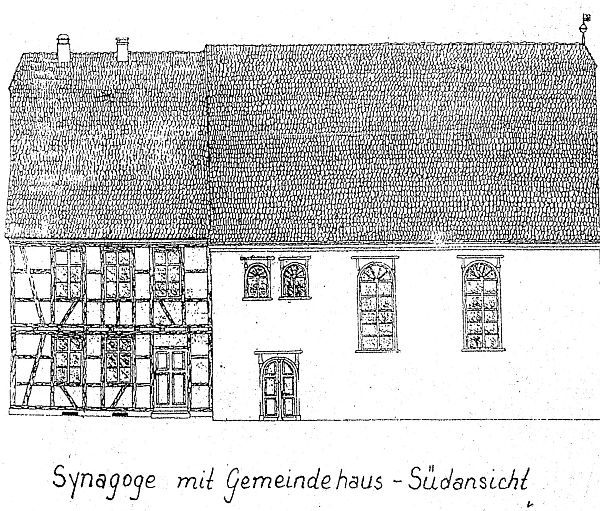 Synagoge mit Gemeindehaus - Südansicht